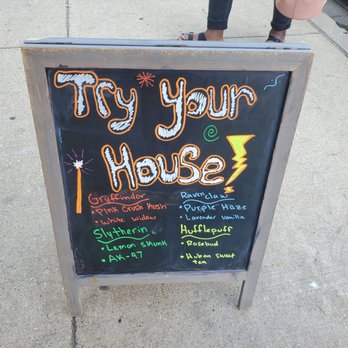 Try Your
House
Gryffindor
• Pink Crush Kush
• White Widow
Slytherin
• Lemon Skunk
• AK-47
Ravenclaw
• Purple Haze
• Lavender Vanilla
Hufflepuff
• Rosebud
• Hunan Sweet
tea